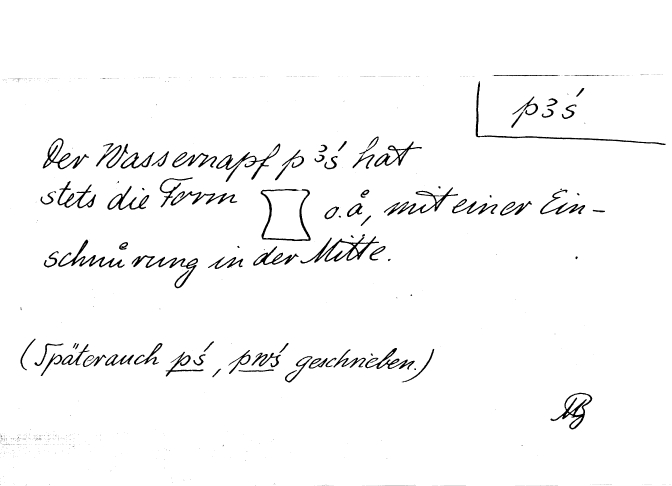 pꜣś
Der Wassernapf pꜣś hat
stets die Form o.ä, mit einer Ein-
schnürung in der Mitte.
(Später auch pś, pwś geschrieben.)